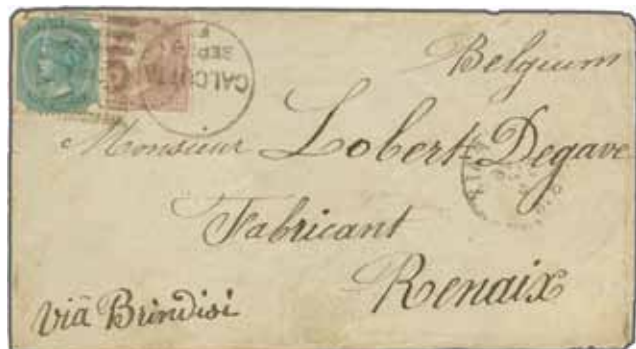 CALCUTTA
SEP
Belgium
Monsieur Lobert-Degave
Fabricant
Renaix
viâ Brindisi